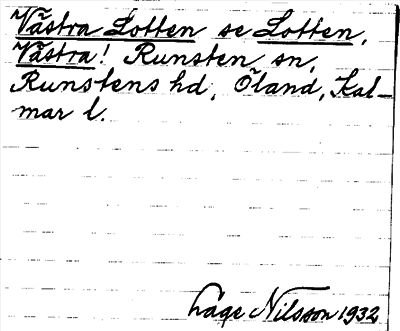 Västra Lotten se Lotten,
Västra! Runsten sn,
Runstens hd, Öland, Kal-
mar l.
Låge Nilsson 1932